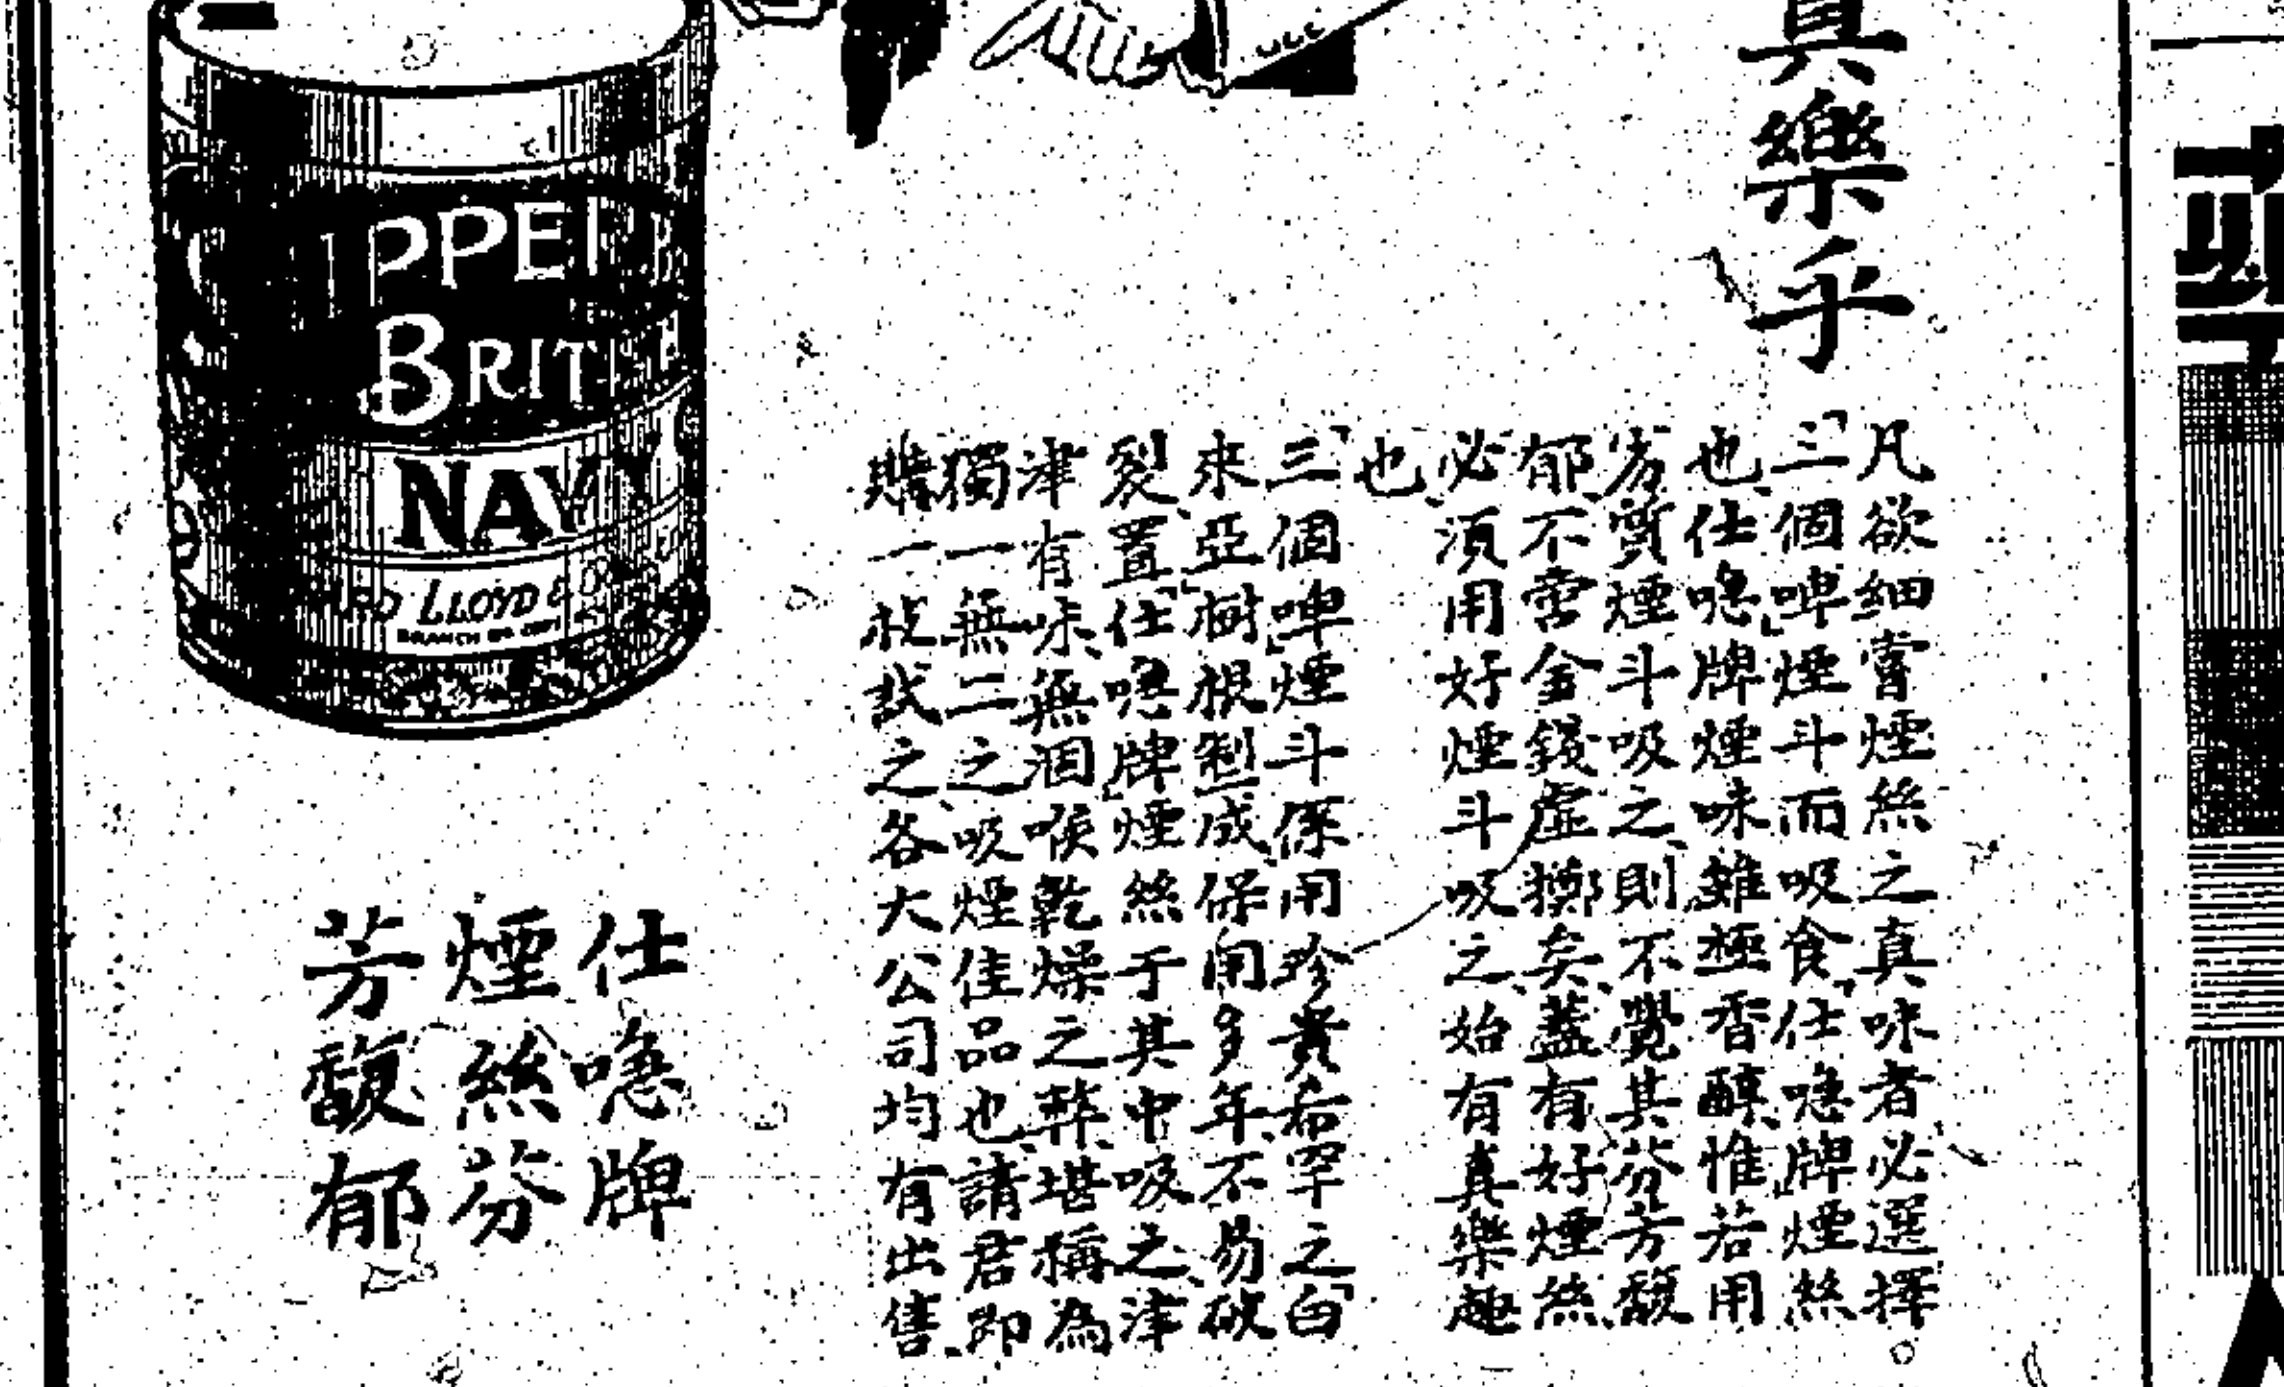 真樂乎
凡欲細嘗煙絲之真味者必選擇
「三個啤」煙斗而吸食「仕噫牌」煙絲
也、仕噫牌煙味雖極香醇、惟若用
劣質煙斗吸之、則不覺其芬芳馥
郁、不啻金錢虛擲矣、蓋有好煙絲、
必須用好煙斗吸之、始有真樂趣
也、
「三個啤」煙斗係用珍貴希罕之「白
來亞樹根」製成、保用多年、不易破
裂、置「仕噫牌」煙絲于其中吸之、津
津有味、無涸喉乾燥之弊、堪稱為
獨一無二之吸煙佳品也、請君即
購一枝試之、各大公司均有出售、
PPER
BRIT
NAVY
LLOYD &
仕噫牌
煙絲芬
芳馥郁